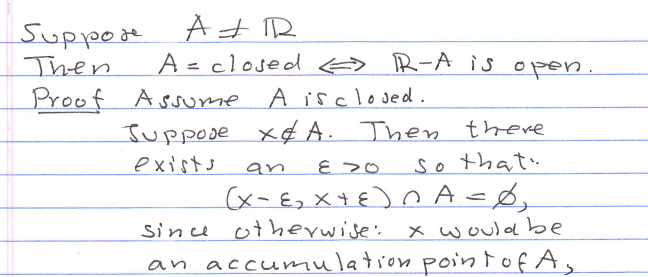 Suppose A ≠ ℝ
Then A = closed ⟺ ℝ-A is open.
Proof Assume A is closed.
Suppose x ∉ A. Then there
exists an ε > 0 so that:
(x-ε, x+ε) ∩ A = ∅,
since otherwise: x would be
an accumulation point of A,